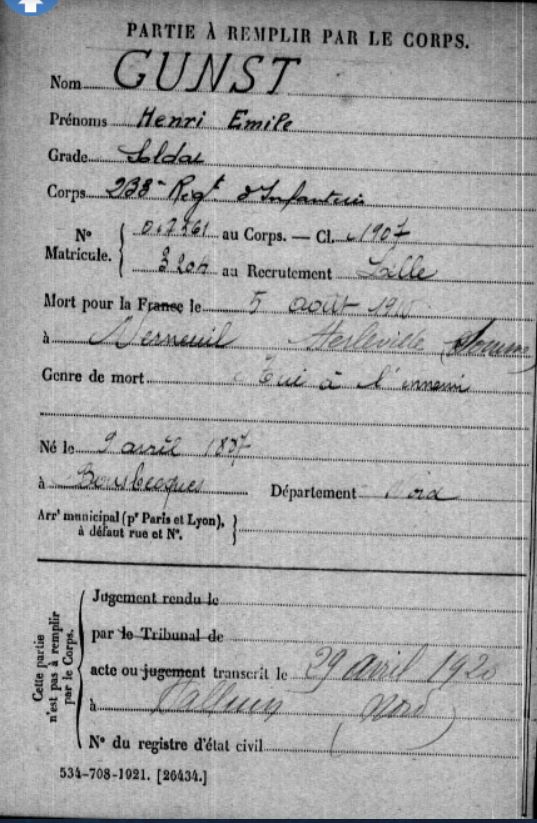 PARTIE À REMPLIR PAR LE CORPS.
Nom GUNST
Prénoms Henri Emile
Grade Soldat
Corps 233e Regt d'Infanterie
Nº Matricule. au Corps. — Cl. 1907
3204 au Recrutement Lille
Mort pour la France le 5 août
à Verneuil Herleville (Somme)
Genre de mort Tué à l'ennemi
Né le 9 avril 1887
à Bousbecques Département Nord
Arrt municipal (pr Paris et Lyon), à défaut rue et Nº.
Cette partie n'est pas à remplir par le Corps.
Jugement rendu le
par le Tribunal de
acte ou jugement transcrit le 29 avril 1920
à Halluin (Nord)
Nº du registre d'état civil
534-708-1921. [26434.]